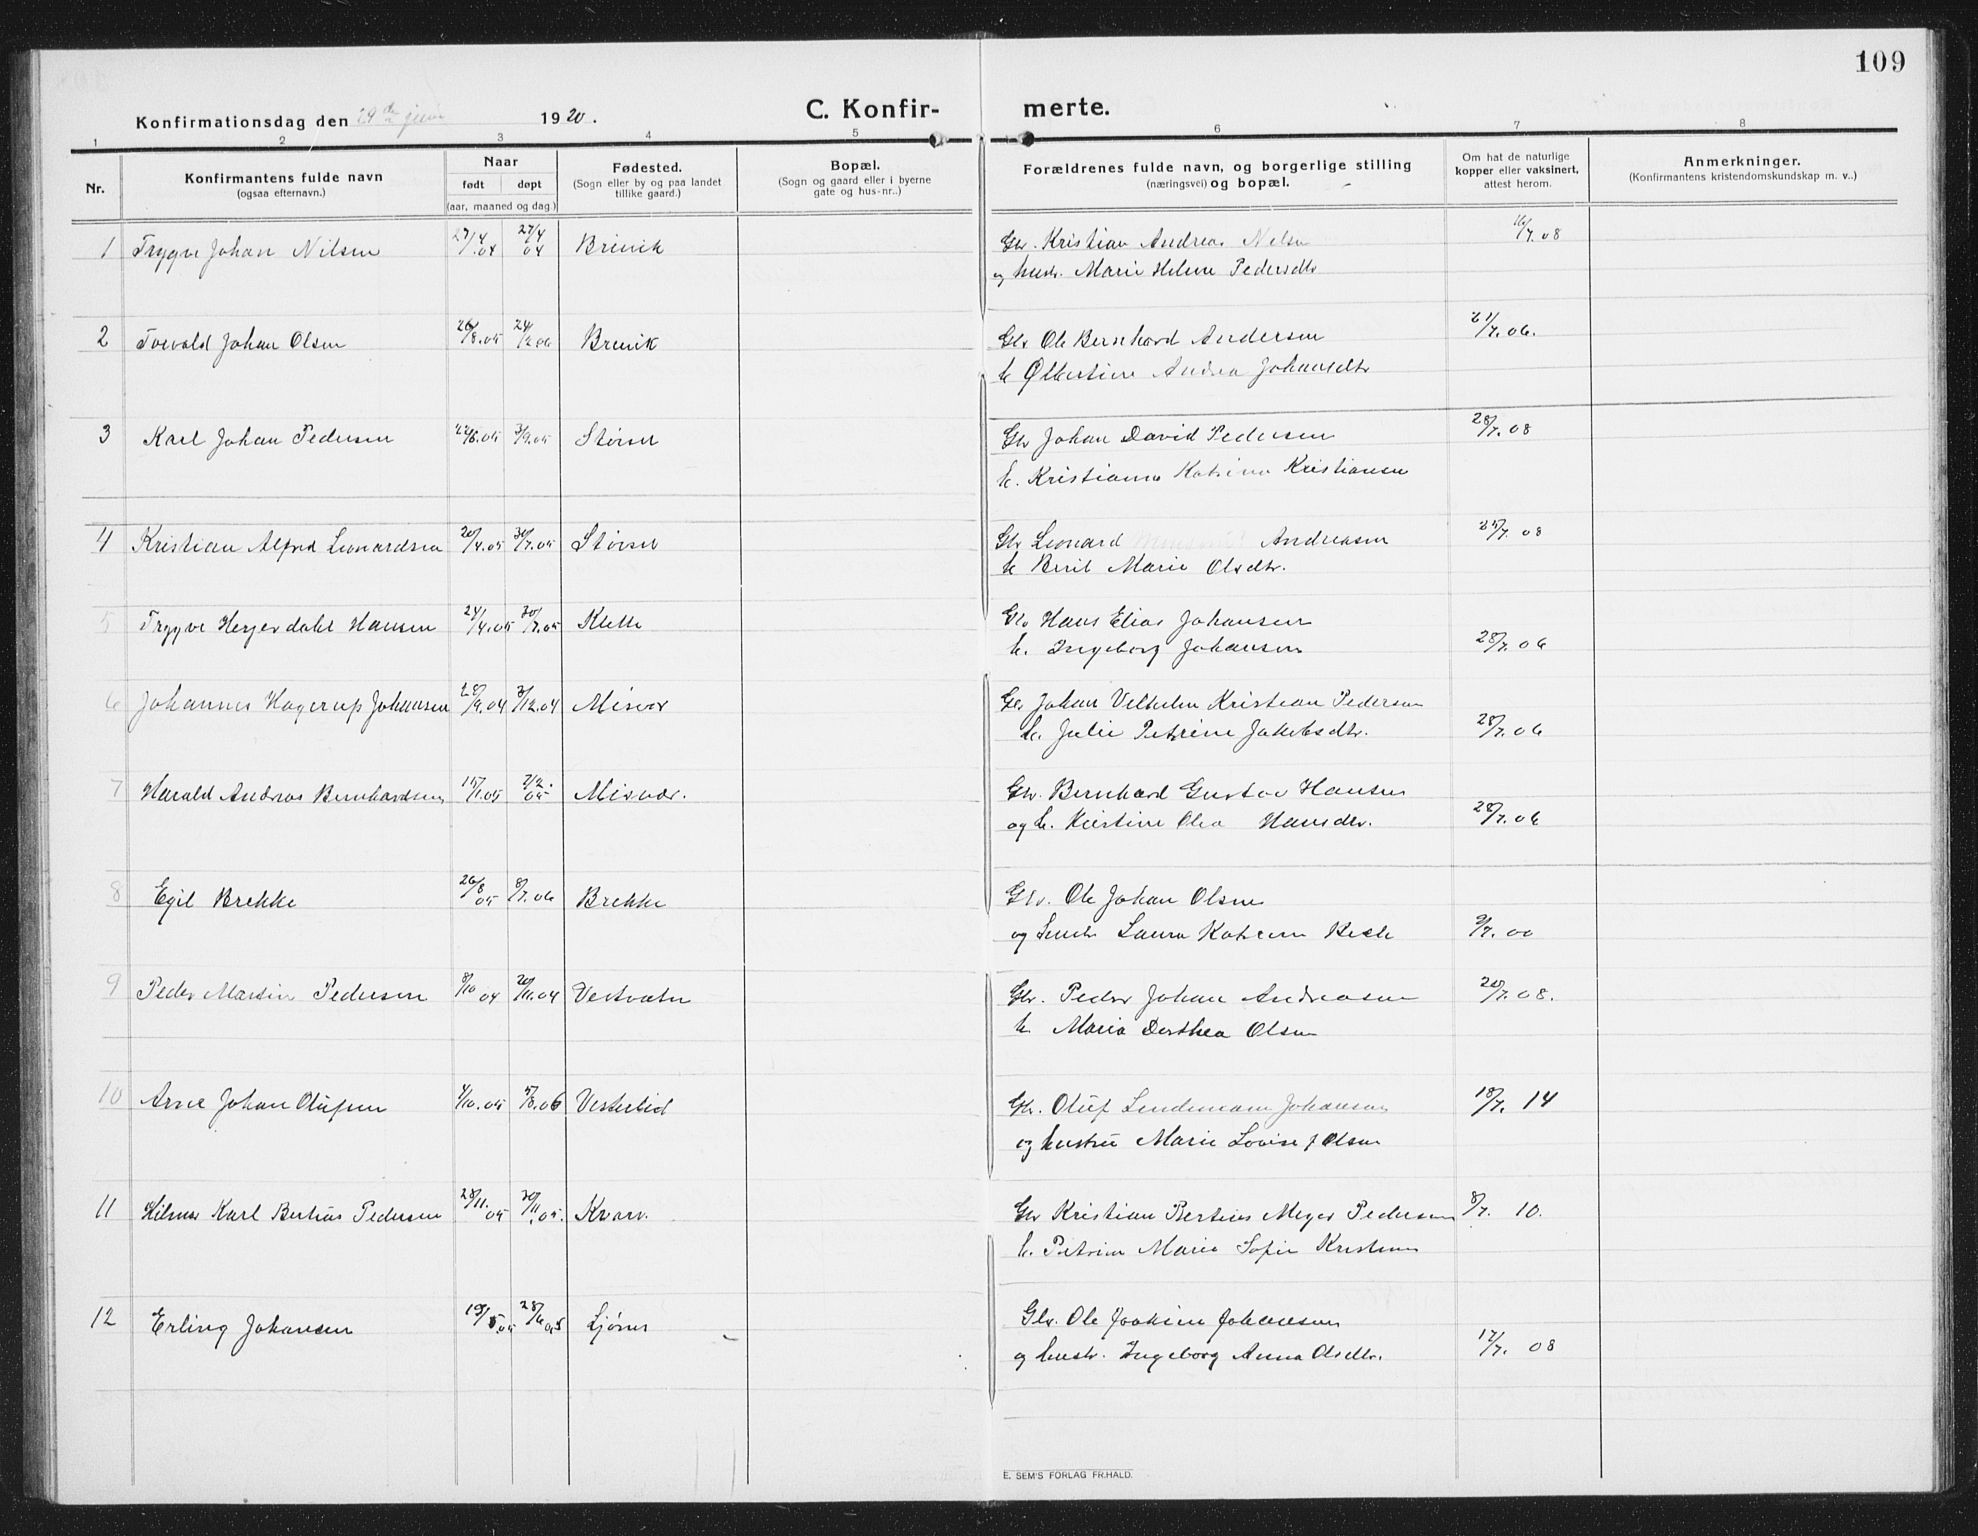 109
Konfirmationsdag den 29de juni 1920. C. Konfir- merte.
1 2 3 4 5 6 7 8
Nr. Konfirmantens fulde navn (ogsaa efternavn.) Naar født døpt (aar, maaned og dag.) Fødested. (Sogn eller by og paa landet tillike gaard.) Bopæl. (Sogn og gaard eller i byerne gate og hus-nr..) Forældrenes fulde navn, og borgerlige stilling (næringsvei) og bopæl. Om hat de naturlige kopper eller vaksinert, attest herom. Anmerkninger. (Konfirmantens kristendomskundskap m. v..)
1 Trygve Johan Nilsen 27/4.04 27/4 04 Brevik Gbr. Kristian Andreas Nilsen 16/7.08
og hustr. Marie Helene Pedersdtr
2 Torvald Johan Olsen 26/8.05 24/2.06 Brevik Gbr Ole Bernhard Andersen 21/7.06.
h. Olbertine Andrea Johansdtr
3 Karl Johan Pedersen 22/6.05 3/9.05 Storset Gbr Johan David Pedersen 28/7.08
h. Kristianna Katrine Kristiansen
4 Kristian Alfred Leonardsen 20/4.05 30/7.05 Storset Gbr Leonard Andreasen 25/7.08
h Berit Marie Olsdtr.
5 Trygve Herjerdahl Hansen 24/4.05 30/7.05 Klette Gbr Hans Elias Johansen
h. Ingeborg Johansen 28/7.06
6 Johannes Hagerup Johansen 28/9.04 31/12.04 Misvær Gbr Johan Velhelm Kristian Pedersen
h. Julie Petrine Jakobsdtr. 28/7.06
7 Harald Andreas Bernhardsen 15/1.05 2/2.05 Misvær. Gbr. Bernhard Gustav Hansen
og h. Kristine Olea Hansdtr. 28/7.06
8 Egil Brekke 26/8 05 8/7.06 Brekke Gbr. Ole Johan Olsen
og hustr Laura Katrine 9/7.00
9 Peder Martin Pedersen 8/10 04 20/11.04 Vestvatn Gbr. Peder Johan Andreasen 20/7.08.
h. Maria Dorthea Olsen
10 Arne Johan Olufsen 4/10.05 5/8.06 Vesterlid Gbr. Oluf Lindemann Johansen 18/7. 14
og hustru Marie Lovise J Olsen
11 Hilmar Karl Bertius Pedersen 28/11.05 30/11.05. Kvarv. Gbr Kristian Bertius Meyer Pedersen 8/7. 10.
h. Petrine Marie Sofie Kristensen
12 Erling Johansen 19/5.05 28/6.05 Ljønes Gbr. Ole Joakim Johansen
og hustr. Ingeborg Anna Olsdtr. 17/7. 08
E. SEM'S FORLAG FR.HALD.